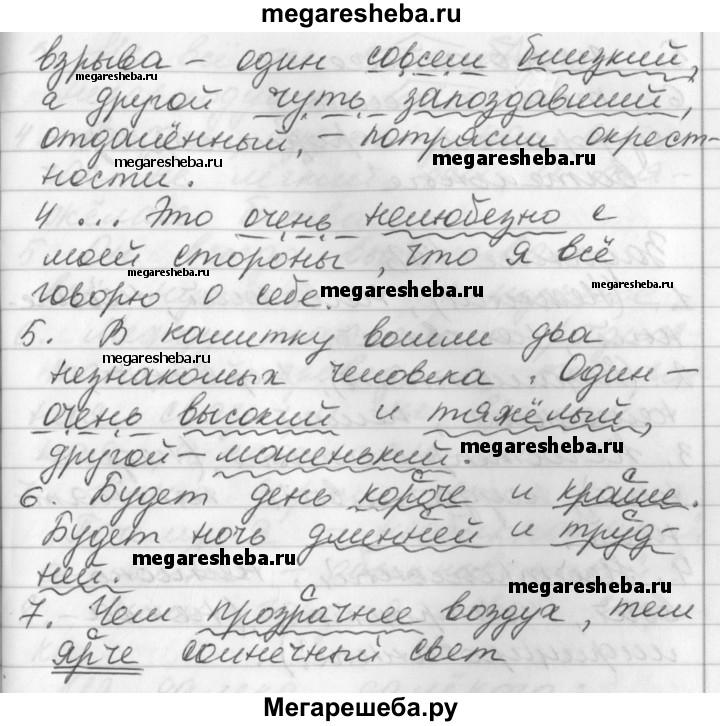 megaresheba.ru
взрыва – один совсем близкий,
megaresheba.ru
а другой чуть запоздавший,
отдалённый, – потрясли окрест-
megaresheba.ru megaresheba.ru
ности.
4 ... Это очень нелюбезно с
моей стороны, что я всё
megaresheba.ru
говорю о себе. megaresheba.ru
5. В калитку вошли два
megaresheba.ru
незнакомых человека. Один –
очень высокий и тяжёлый,
другой – маленький. megaresheba.ru
6. Будет день короче и краше.
Будет ночь длинней и труд-
ней. megaresheba.ru
megaresheba.ru
7. Чем прозрачнее воздух, тем
ярче солнечный свет
Мегарешеба.ру